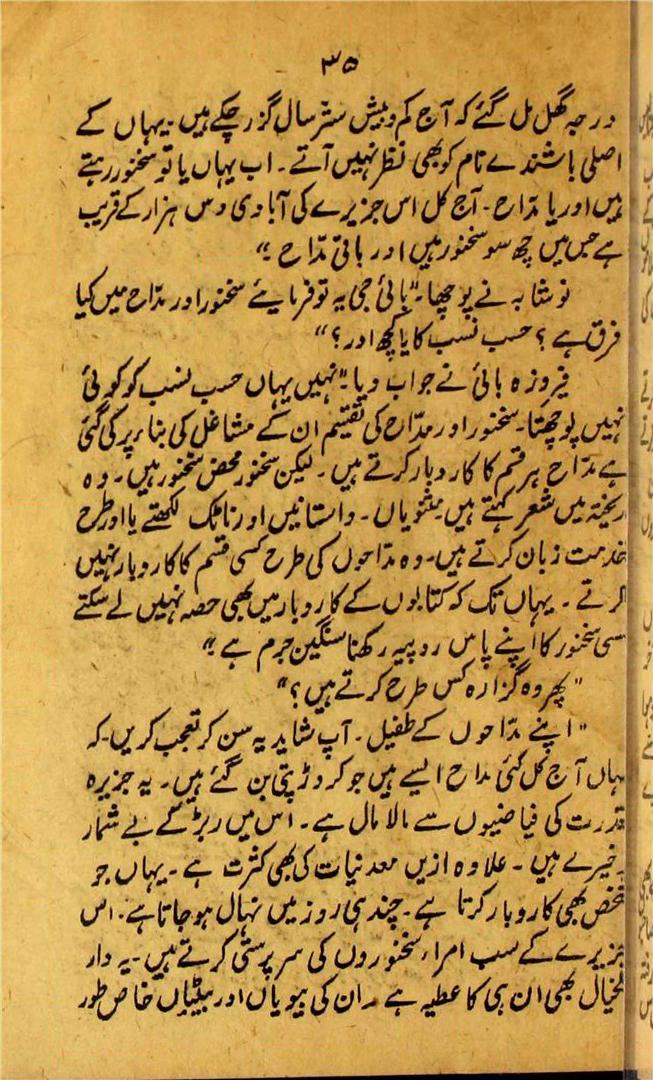 ۳۵
درجہ گھل مل گئے کہ آج کم و بیش ستر سال گزر چکے ہیں۔ یہاں کے
اصلی باشندے نام کو بھی نظر نہیں آتے۔ اب یہاں یا تو سخنور رہتے
ہیں اور یا مدّاح۔ آج کل اس جزیرے کی آبادی دس ہزار کے قریب
ہے جس میں چھ سو سخنور ہیں اور باقی مدّاح۔“
نوشابہ نے پوچھا۔ ”بائی جی یہ تو فرمایئے سخنور اور مدّاح میں کیا
فرق ہے؟ حسب نسب کا یا کچھ اور؟“
فیروزہ بائی نے جواب دیا۔ ”نہیں یہاں حسب نسب کو کوئی
نہیں پوچھتا۔ سخنور اور مدّاح کی تقسیم ان کے مشاغل کی بناء پر کی گئی
ہے مدّاح ہر قسم کا کاروبار کرتے ہیں۔ لیکن سخنور محض سخنور ہیں۔ وہ
ریختہ میں شعر کہتے ہیں۔ مثنویاں۔ داستانیں اور ناٹک لکھتے یا اور طرح
خدمت زبان کرتے ہیں۔ وہ مدّاحوں کی طرح کسی قسم کا کاروبار نہیں
کرتے۔ یہاں تک کہ کتابوں کے کاروبار میں بھی حصہ نہیں لے سکتے
کسی سخنور کا اپنے پاس روپیہ رکھنا سنگین جرم ہے۔“
”پھر وہ گزارہ کس طرح کرتے ہیں؟“
”اپنے مدّاحوں کے طفیل۔ آپ شاید یہ سن کر تعجب کریں۔ کہ
یہاں آج کل کئی مداح ایسے ہیں جو کروڑ پتی بن گئے ہیں۔ یہ جزیرہ
قدرت کی فیاضیوں سے مالا مال ہے۔ اس میں ربڑ کے بے شمار
ذخیرے ہیں۔ علاوہ ازیں معدنیات کی بھی کثرت ہے۔ یہاں جو
شخص بھی کاروبار کرتا ہے۔ چند ہی روز میں نہال ہو جاتا ہے۔ اس
جزیرے کے سب امراء سخنوروں کی سرپرستی کرتے ہیں۔ یہ دار
الخیال بھی ان ہی کا عطیہ ہے۔ ان کی بیویاں اور بیٹیاں خاص طور